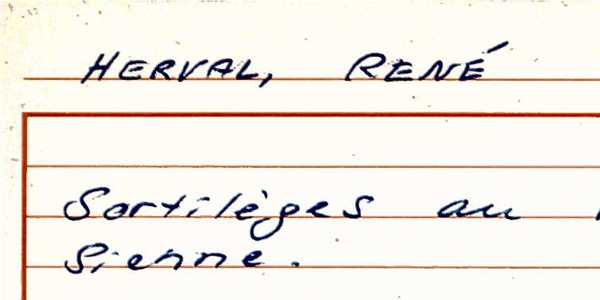 HERVAL, RENÉ
Sortilèges au
Sienne.